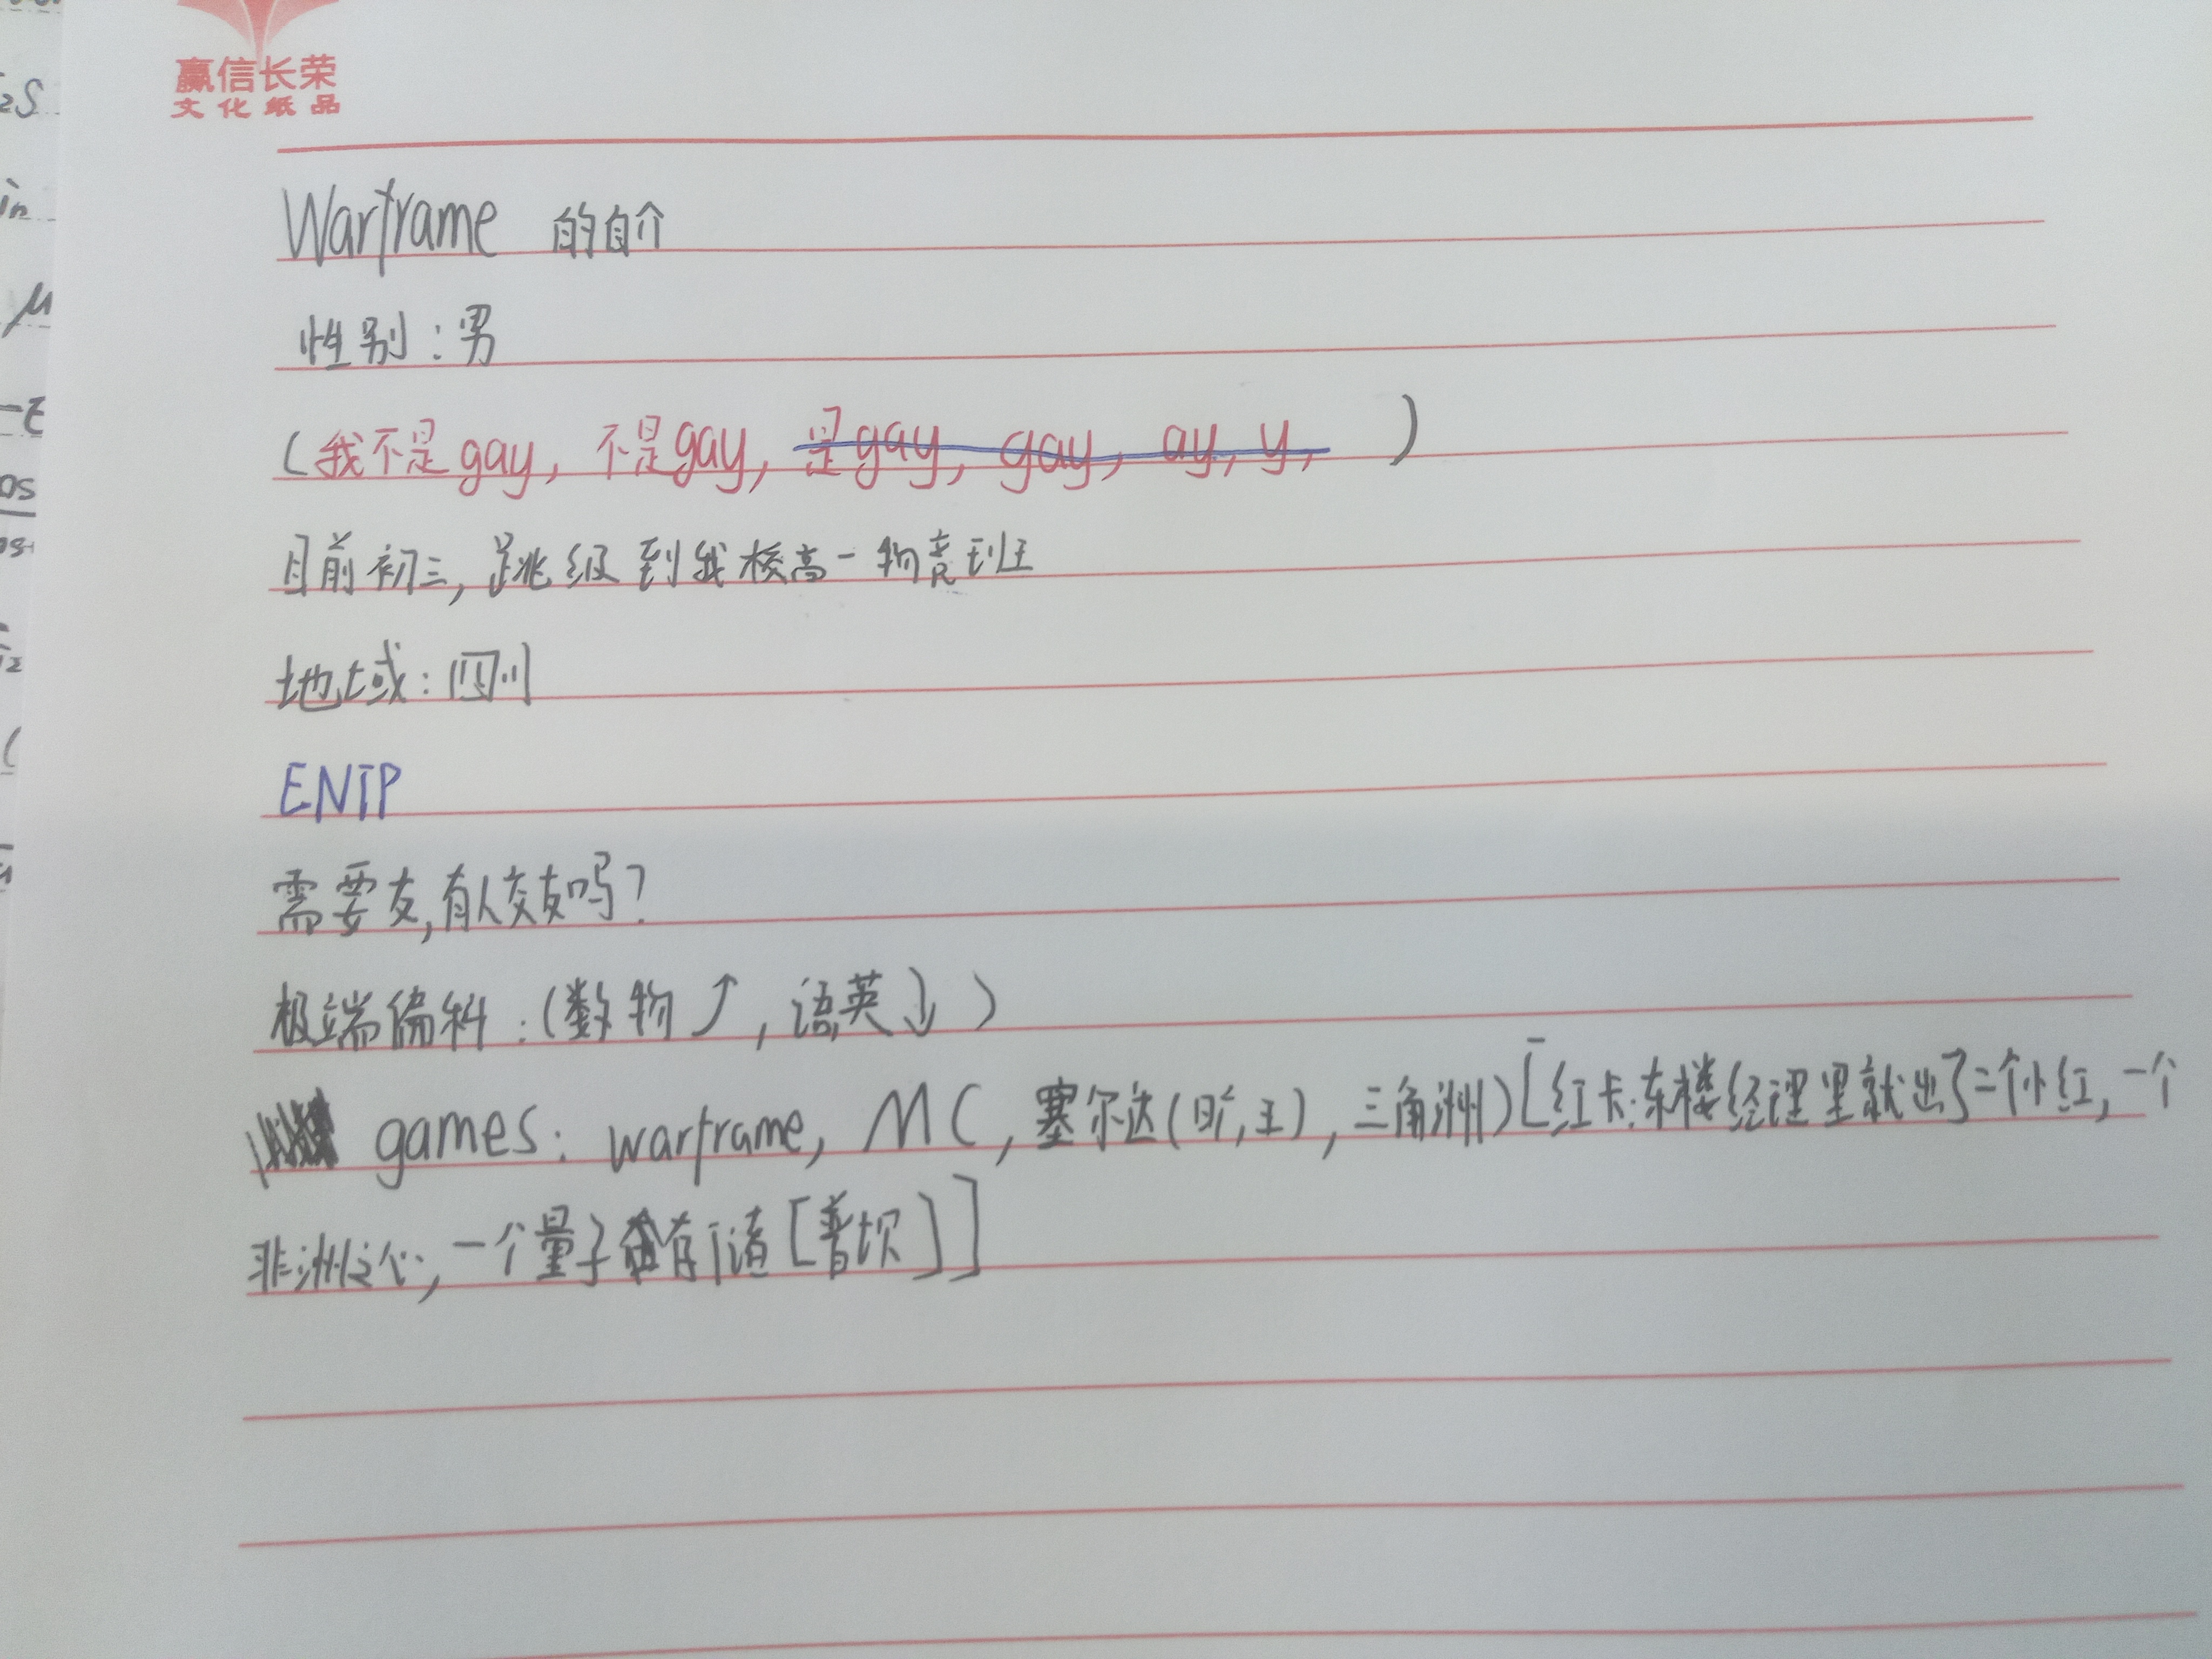 赢信长荣
文化纸品
Warframe 的自介
性别:男
(我不是gay, 不是gay, 是gay, gay, ay, y, )
目前初三, 跳级到我校高一物竞班
地域:四川
ENTP
需要友,有人交友吗?
极端偏科:(数物↑, 语英↓)
games: warframe, MC, 塞尔达(旷,王), 三角洲)[红卡:东楼经理里就出了二个小红, 一个
非洲之心, 一个量子存储[普坝]]
2S
in
μ
os